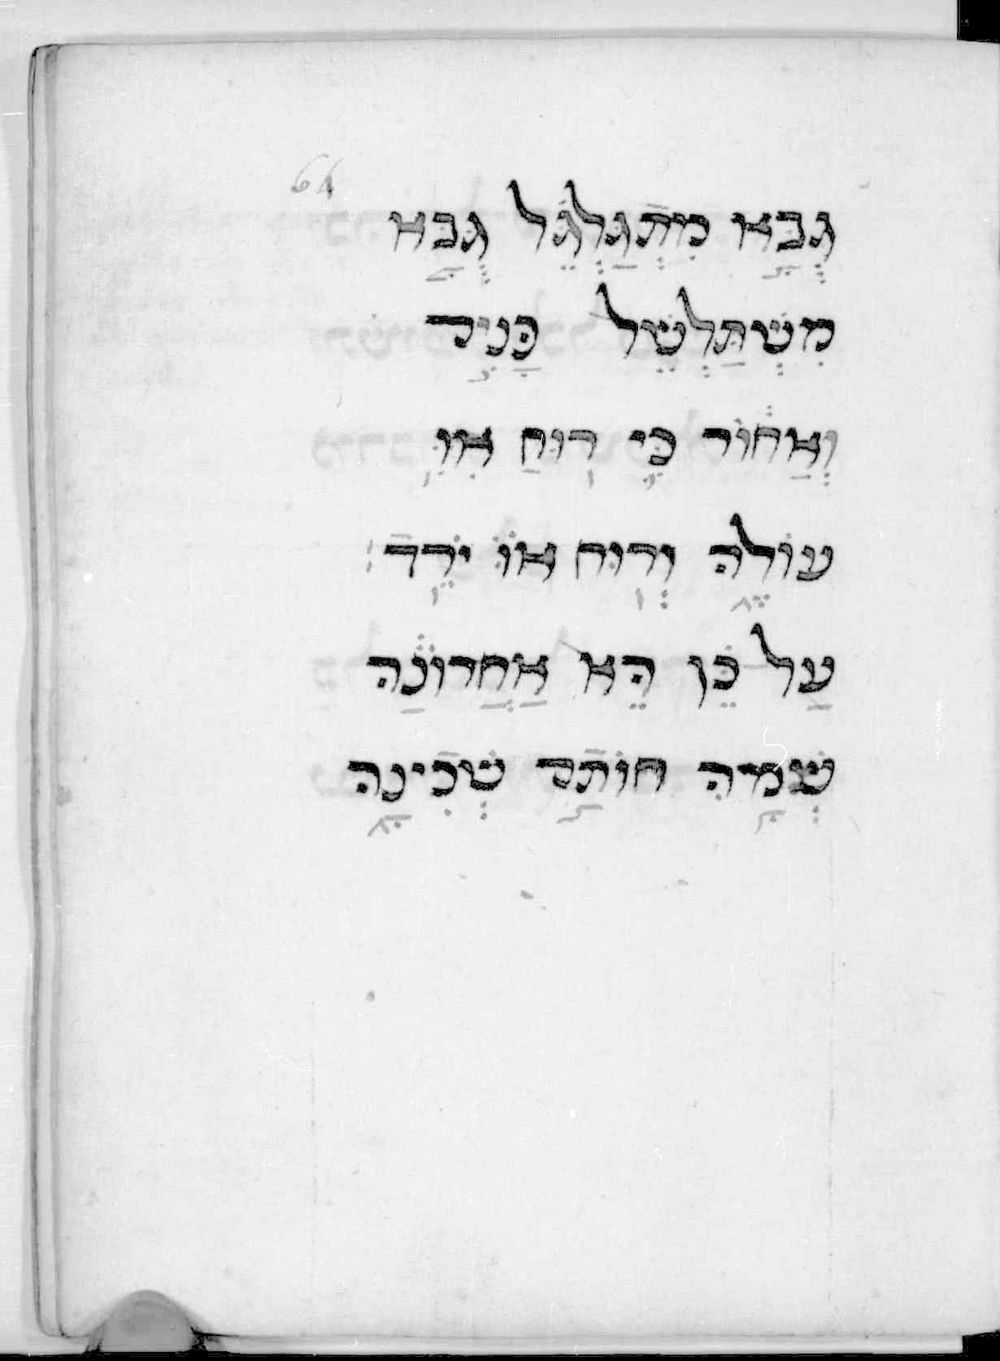 64
גְּבָּא מִתְגַּלְגֵּל גְּבָּא
מִשְׁתַּלְשֵׁל כַּנְיָד
וְאָחוֹר כִּי רוּחַ אוֹ
עוֹלֶה וְרוּחַ אוֹ יֹרֵד
עַל כֵּן הֵא אַחֲרוֹנָה
שְׁמָהּ חוֹתַם שְׁכִינָה